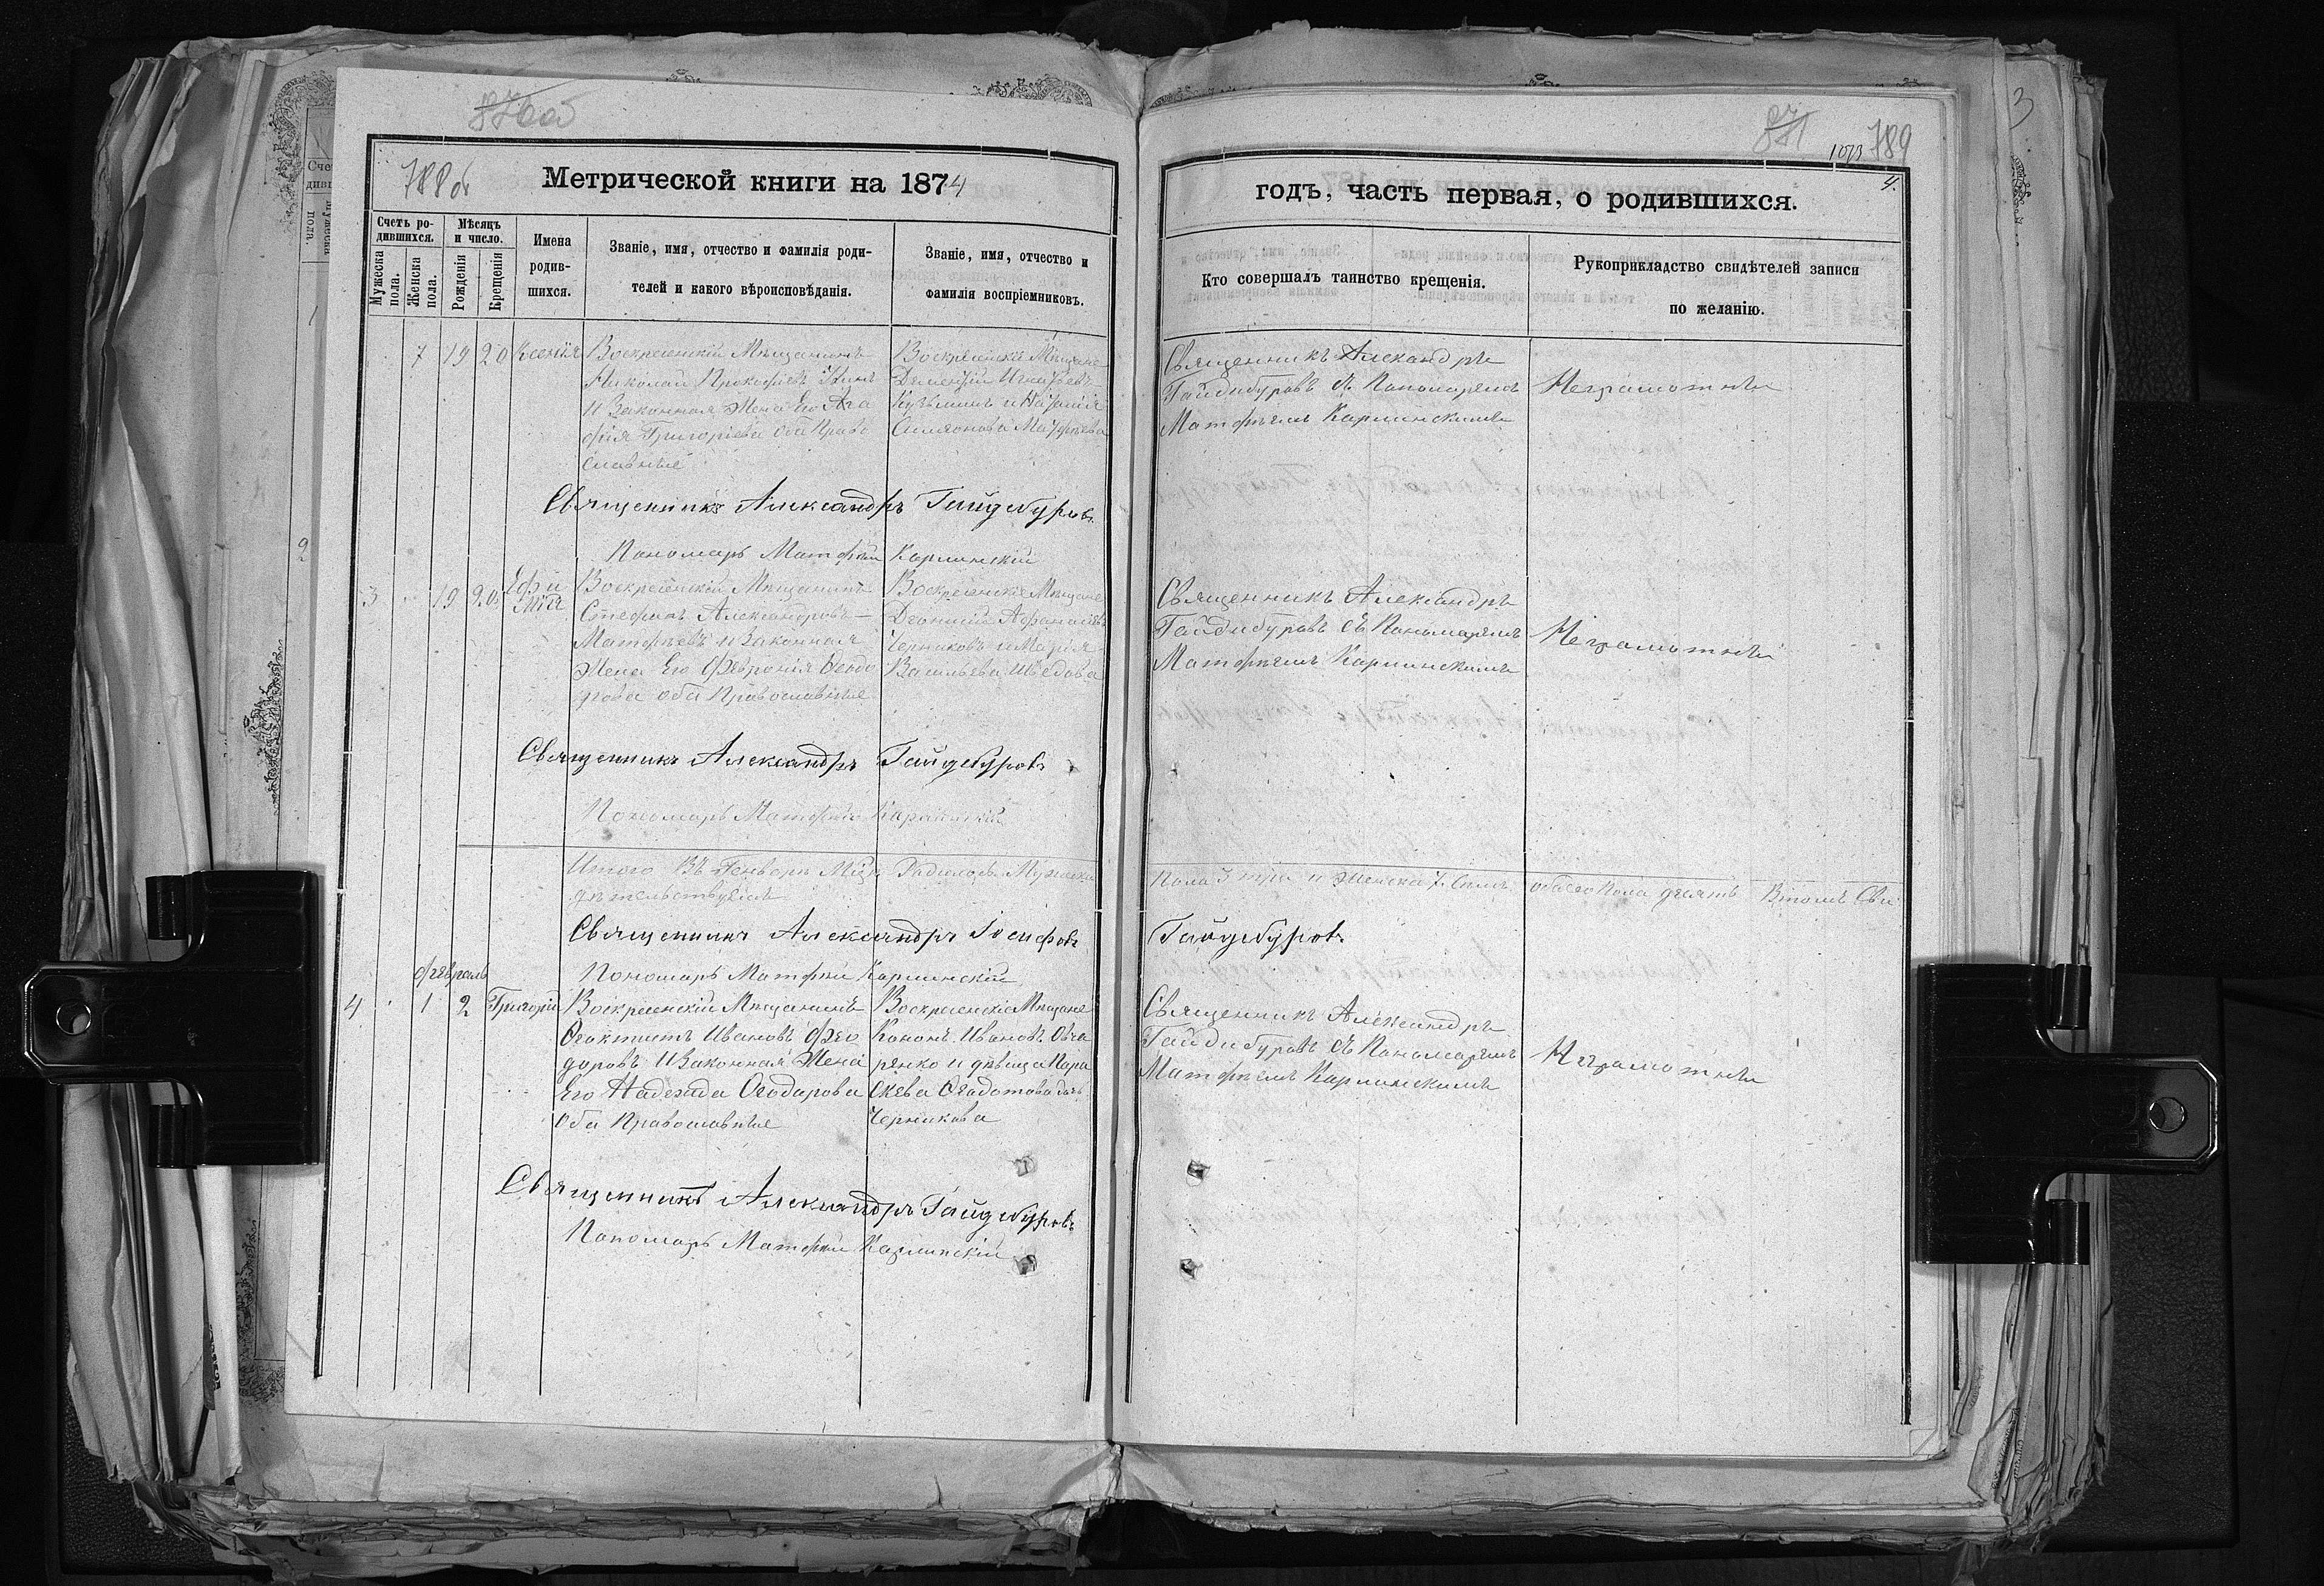 876об
788об
Метрической книги на 1874
Счетъ ро-
дившихся.
Мѣсяцъ
и число.
Мужеска
пола.
Женска
пола.
Рожденія
Крещенія
Имена
родив-
шихся.
Званіе, имя, отчество и фамилія роди-
телей и какого вѣроисповѣданія.
Званіе, имя, отчество и
фамилія воспріемниковъ.
7 19 20 Ксенія
Воскресенскій Мѣщанинъ
Николай Прокофіевъ
и Законная Жена Его Ага
фія Григоріева оба Право
славные
Воскресенскіе Мѣщане
Дементій Игнатьевъ
Кузьминъ и Наталія
Симеонова Матфѣева
Священникъ Александръ Гайдебуровъ
Пономарь Матфей Карпинскій
3 19 20 Ефи
мія
Воскресенскій Мѣщанинъ
Стефанъ Александровъ
Матфѣевъ и Законная
Жена Его Февронія Феодо
рова оба Православные
Воскресенскіе Мѣщане
Леонтій Афанасіевъ
Черниковъ и Марія
Васильева Шведова
Священникъ Александръ Гайдебуровъ
Пономарь Матфей Карпинскій
Итого Въ Генворѣ Мцѣ Родилось Мужеска
дѣтельствуемъ
Священникъ Александръ Іосифовъ
Пономарь Матфей Карпинскій
февраль
4 1 2 Григорій
Воскресенскій Мѣщанинъ
Феоктистъ Ивановъ Фео
доровъ и Законная Жена
Его Надежда Феодорова
Оба Православные
Воскресенскіе Мѣщане
Кононъ Ивановъ Овча
ренко и дѣвица Пара
скева Федотова дочь
Черникова
Священникъ Александръ Гайдебуровъ
Пономарь Матфей Карпинскій
871
1073 789
4.
годъ, часть первая, о родившихся.
Кто совершалъ таинство крещенія.
Рукоприкладство свидѣтелей записи
по желанію.
Священникъ Александръ
Гайдебуровъ съ Пономаремъ
Матфѣемъ Карпинскимъ
Неграмотны
Священникъ Александръ
Гайдебуровъ съ Пономаремъ
Матфѣемъ Карпинскимъ
Неграмотны
Пола 3 три и Женска 7. Семь обоего Пола десять Втомъ Сви
Гайдебуровъ
Священникъ Александръ
Гайдебуровъ съ Пономаремъ
Матфѣемъ Карпинскимъ
Неграмотны
3